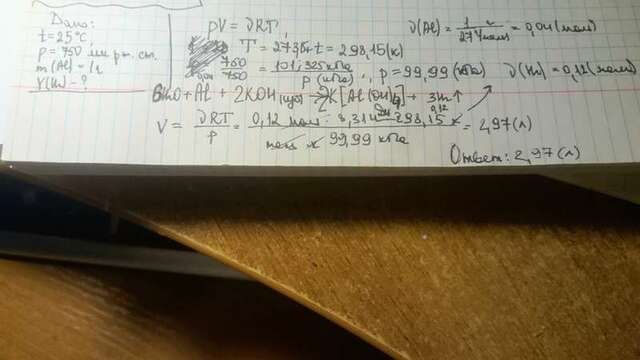 Дано:
t=25°C,
p = 750 мм рт. ст.
m (Al) = 1г
V(H₂) = ?
pV = νRT,
T = 273,15 + t = 298,15 (К)
750 = 101,325 кПа
p (кПа), p = 99,99 (кПа)
ν(Al) = 1 г / 27 г/моль = 0,04 (моль)
ν(H₂) = 0,12 (моль)
6H₂O + Al + 2KOH 2K[Al(OH)₄] + 3H₂↑
0,12
V = νRT / p = 0,12 моль · 8,31 298,15 К / моль К 99,99 кПа = 2,97 (л)
Ответ: 2,97 (л)